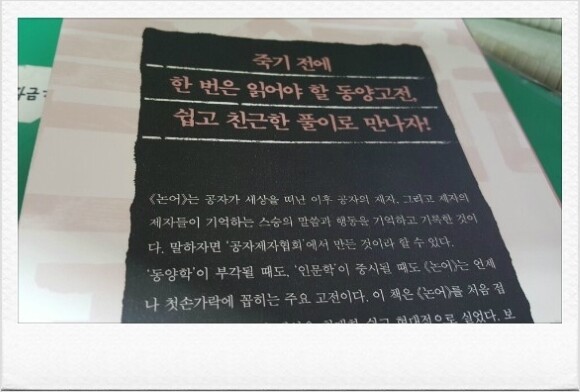 죽기 전에
한 번은 읽어야 할 동양고전,
쉽고 친근한 풀이로 만나자!
《논어》는 공자가 세상을 떠난 이후 공자의 제자, 그리고 제자의
제자들이 기억하는 스승의 말씀과 행동을 기억하고 기록한 것이
다. 말하자면 '공자제자협회'에서 만든 것이라 할 수 있다.
'동양학'이 부각될 때도, '인문학'이 중시될 때도 《논어》는 언제
나 첫손가락에 꼽히는 주요 고전이다. 이 책은 《논어》를 처음 접
쉽고 현대적으로 실었다. 보